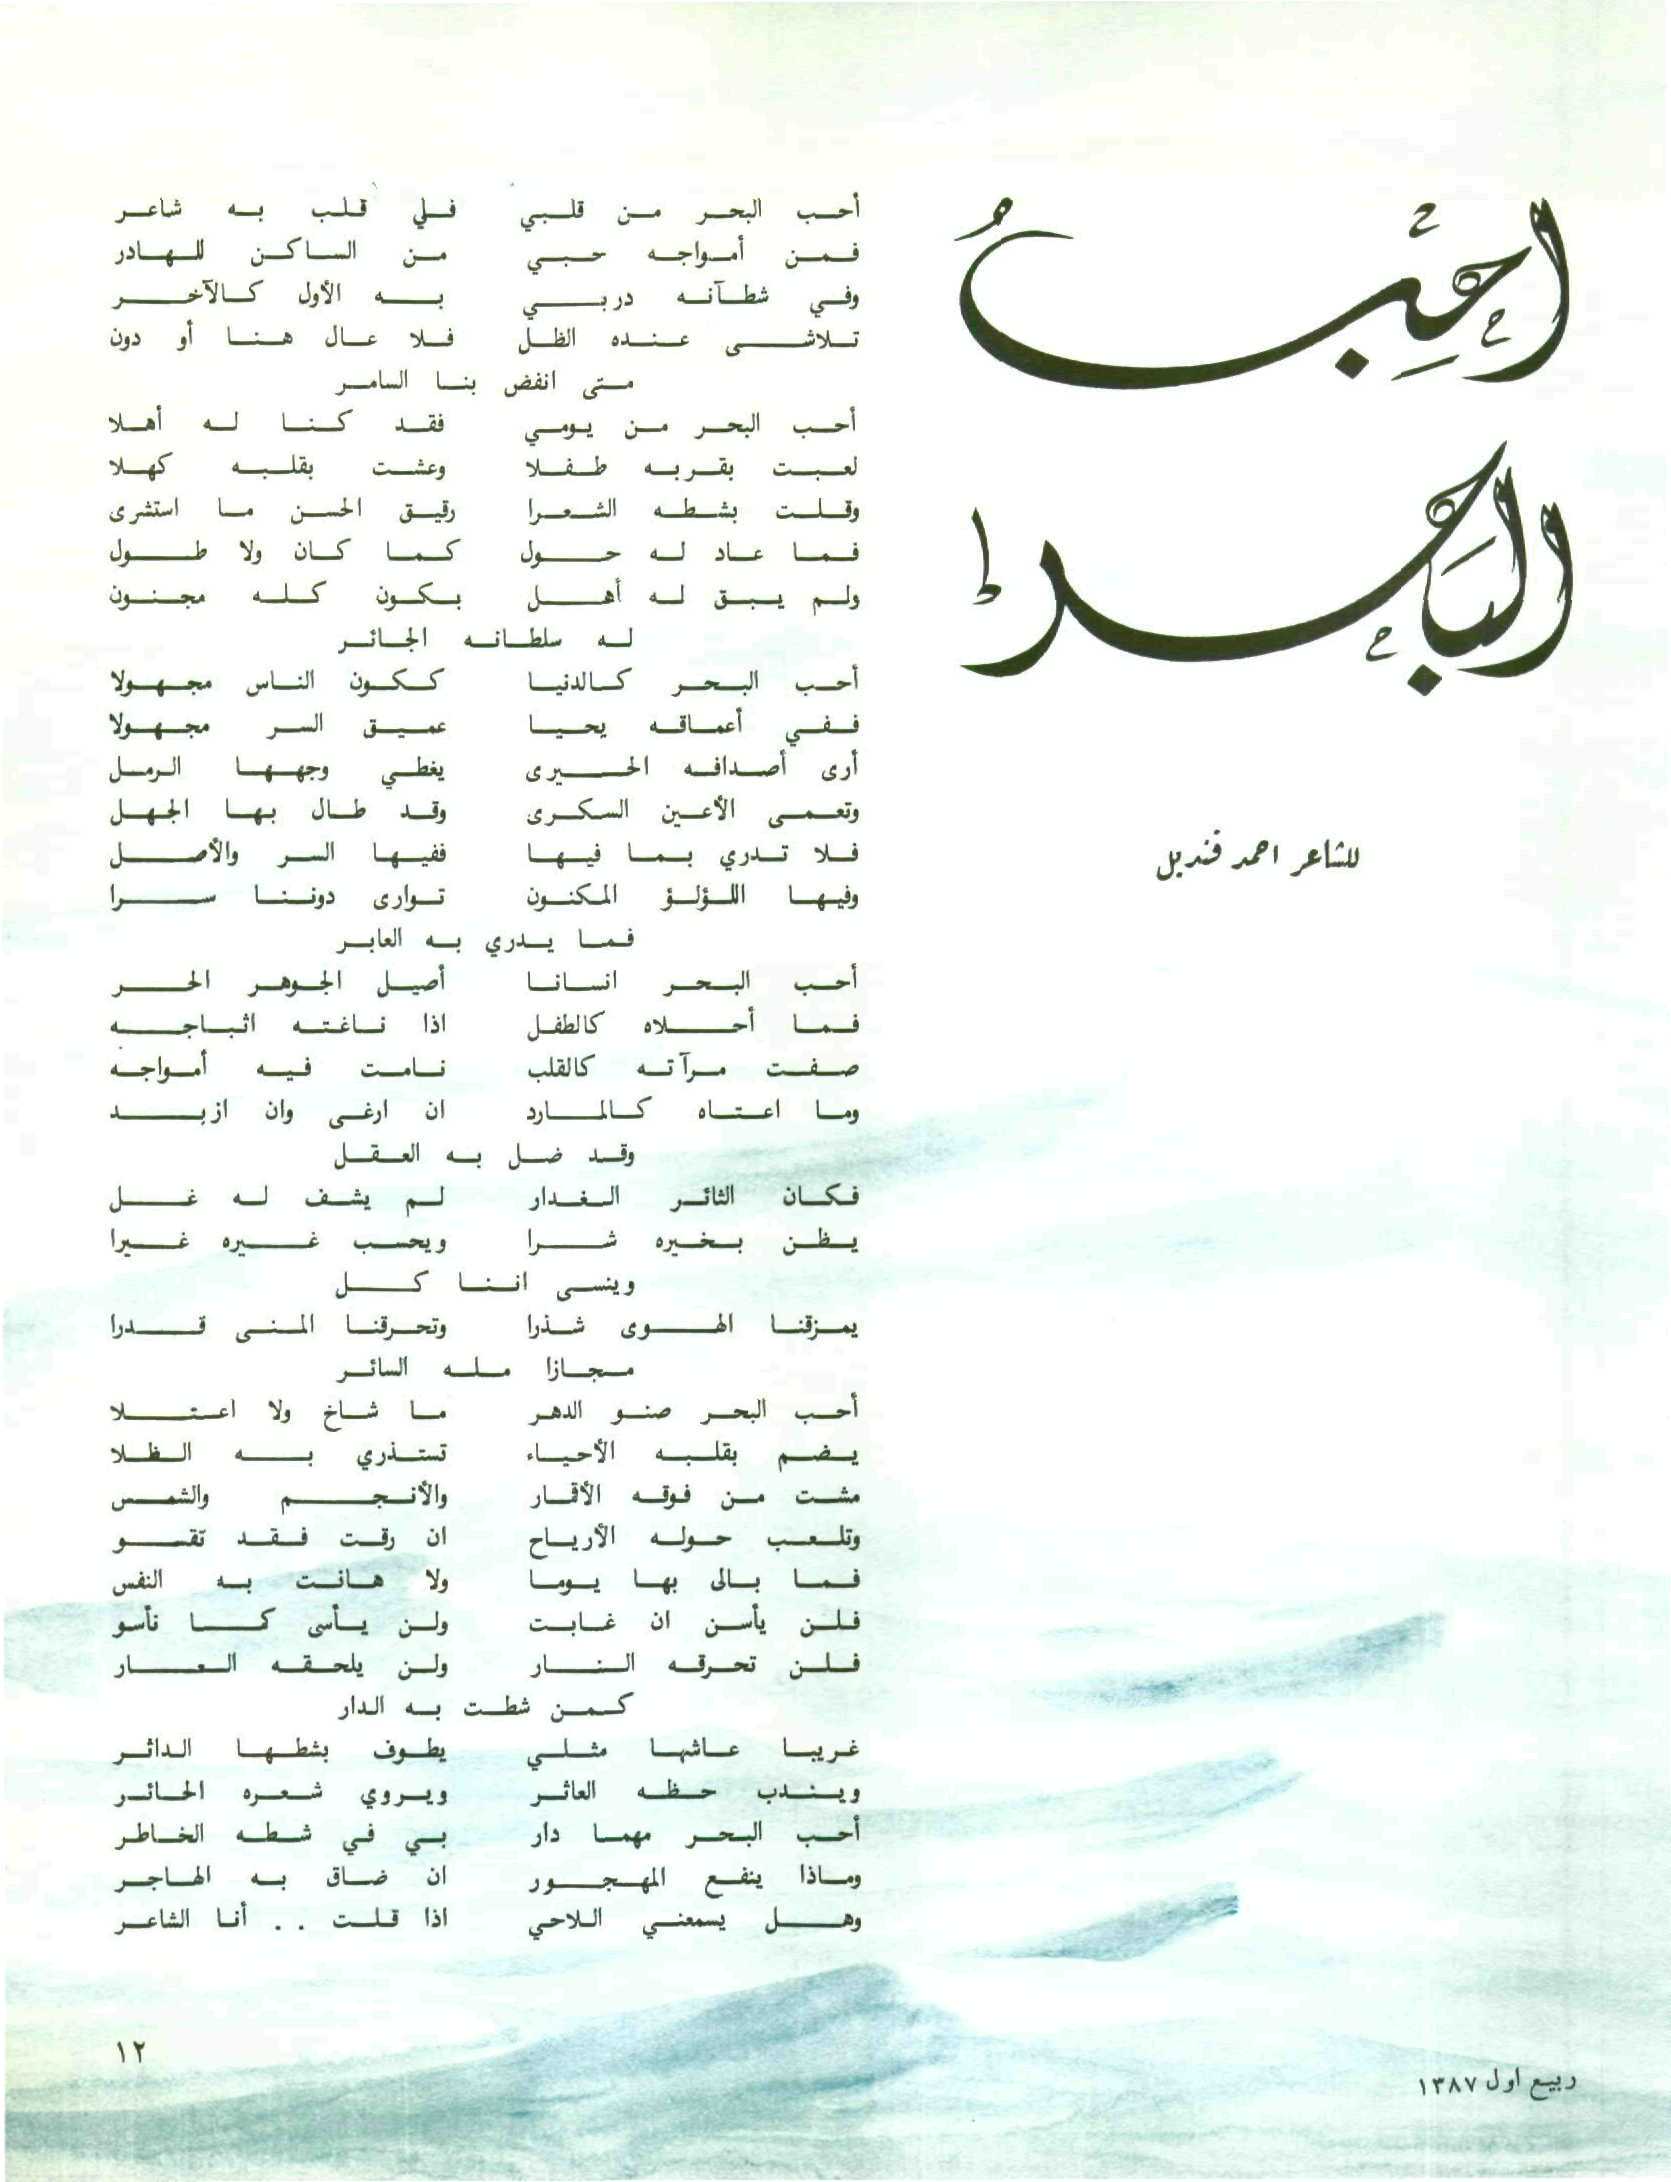 احب
البحر
للشاعر احمد قنديل
أحب البحر من قلبي فلي قلب به شاعر
فمن أمواجه حبي من الساكن للهادر
وفي شطآنه دربي به الأول كالآخر
تلاشى عنده الظل فلا عال هنا أو دون
متى انفض بنا السامر
أحب البحر من يومي فقد كنا له أهلا
لعبت بقربه طفلا وعشت بقلبه كهلا
وقلت بشطه الشعرا رقيق الحسن ما استشرى
فما عاد له حول كما كان ولا طول
ولم يبق له أهل بكون كله مجنون
له سلطانه الجائر
أحب البحر كالدنيا ككون الناس مجهولا
ففي أعماقه يحيا عميق السر مجهولا
أرى أصدافه الحيرى يغطي وجهها الرمل
وتعمى الأعين السكرى وقد طال بها الجهل
فلا تدري بما فيها ففيها السر والأصل
وفيها اللؤلؤ المكنون توارى دوننا سرا
فما يدري به العابر
أحب البحر انسانا أصيل الجوهر الحر
فما أحلاه كالطفل اذا ناغته اثباجه
صفت مرآته كالقلب نامت فيه أمواجه
وما اعتاه كالمارد ان ارغى وان ازبد
وقد ضل به العقل
فكان الثائر الغدار لم يشف له غل
يظن بخيره شرا ويحسب غيره غيرا
وينسى اننا كل
يمزقنا الهوى شذرا وتحرقنا المنى قدرا
مجازا مله السائر
أحب البحر صنو الدهر ما شاخ ولا اعتلا
يضم بقلبه الأحياء تستذري به الظلا
مشت من فوقه الأقمار والأنجم والشمس
وتلعب حوله الأرياح ان رقت فقد تقسو
فما بالى بها يوما ولا هانت به النفس
فلن يأسن ان غابت ولن يأسى كما نأسو
فلن تحرقه النار ولن يلحقه العار
كمن شطت به الدار
غريبا عاشها مثلي يطوف بشطها الدائر
ويندب حظه العاثر ويروي شعره الحائر
أحب البحر مهما دار بي في شطه الخاطر
وماذا ينفع المهجور ان ضاق به الهاجر
وهل يسمعني اللاحي اذا قلت . . أنا الشاعر
ربيع اول ١٣٨٧
١٢